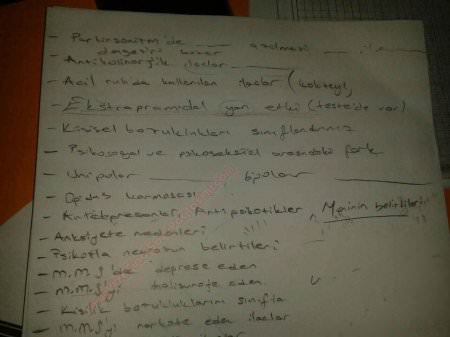 - Parkinsonizm'de ___ azalması ___
dengesini bozar
- Antikolinerjik ilaçlar ___
- Acil ruh'da kullanılan ilaçlar (kokteyl)
- Ekstrapramidal yan etki (teste'de var)
- Kişisel bozuklukları sınıflandırınız
- Psikososyal ve psikoseksüel arasındaki fark
- Unipolar ___ bipolar ___
- Opidus karmaşası
- Antidepresanlar, Antipsikotikler, Maninin belirtileri
- Anksiyete nedenleri
- Psikotla nevrozun belirtileri
- M.M.S'de deprese eden
- M.M.S'yi halisünaje eden
- Kişilik bozukluklarını sınıfla
- M.M.S'yi narkote eden ilaçlar